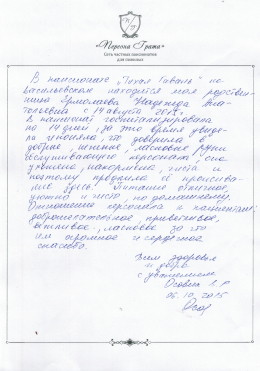 «Персона Грата»
Сеть частных пансионатов
для пожилых
В пансионате "Тихая Гавань" по
Васильевском находится моя родствен-
ница Ермолаева Надежда Ана-
тольевна с 14 августа 2015г.
В пансионат госпитализирована
на 14 дней, за это время увиде-
ла и поняла, что доверила в
добрые, нежные, ласковые руки
обслуживающего персонала, спо-
накормлена, чиста и
поэтому продлила её прожива-
ние здесь. Питание отличное,
уютно и чисто, по-домашнему.
Отношение персонала к пациентам:
доброжелательное, приветливое,
вежливое, ласковое за что
им огромное и сердечное
спасибо.
Всем здоровья
и добра.
с уважением
06.10.2015